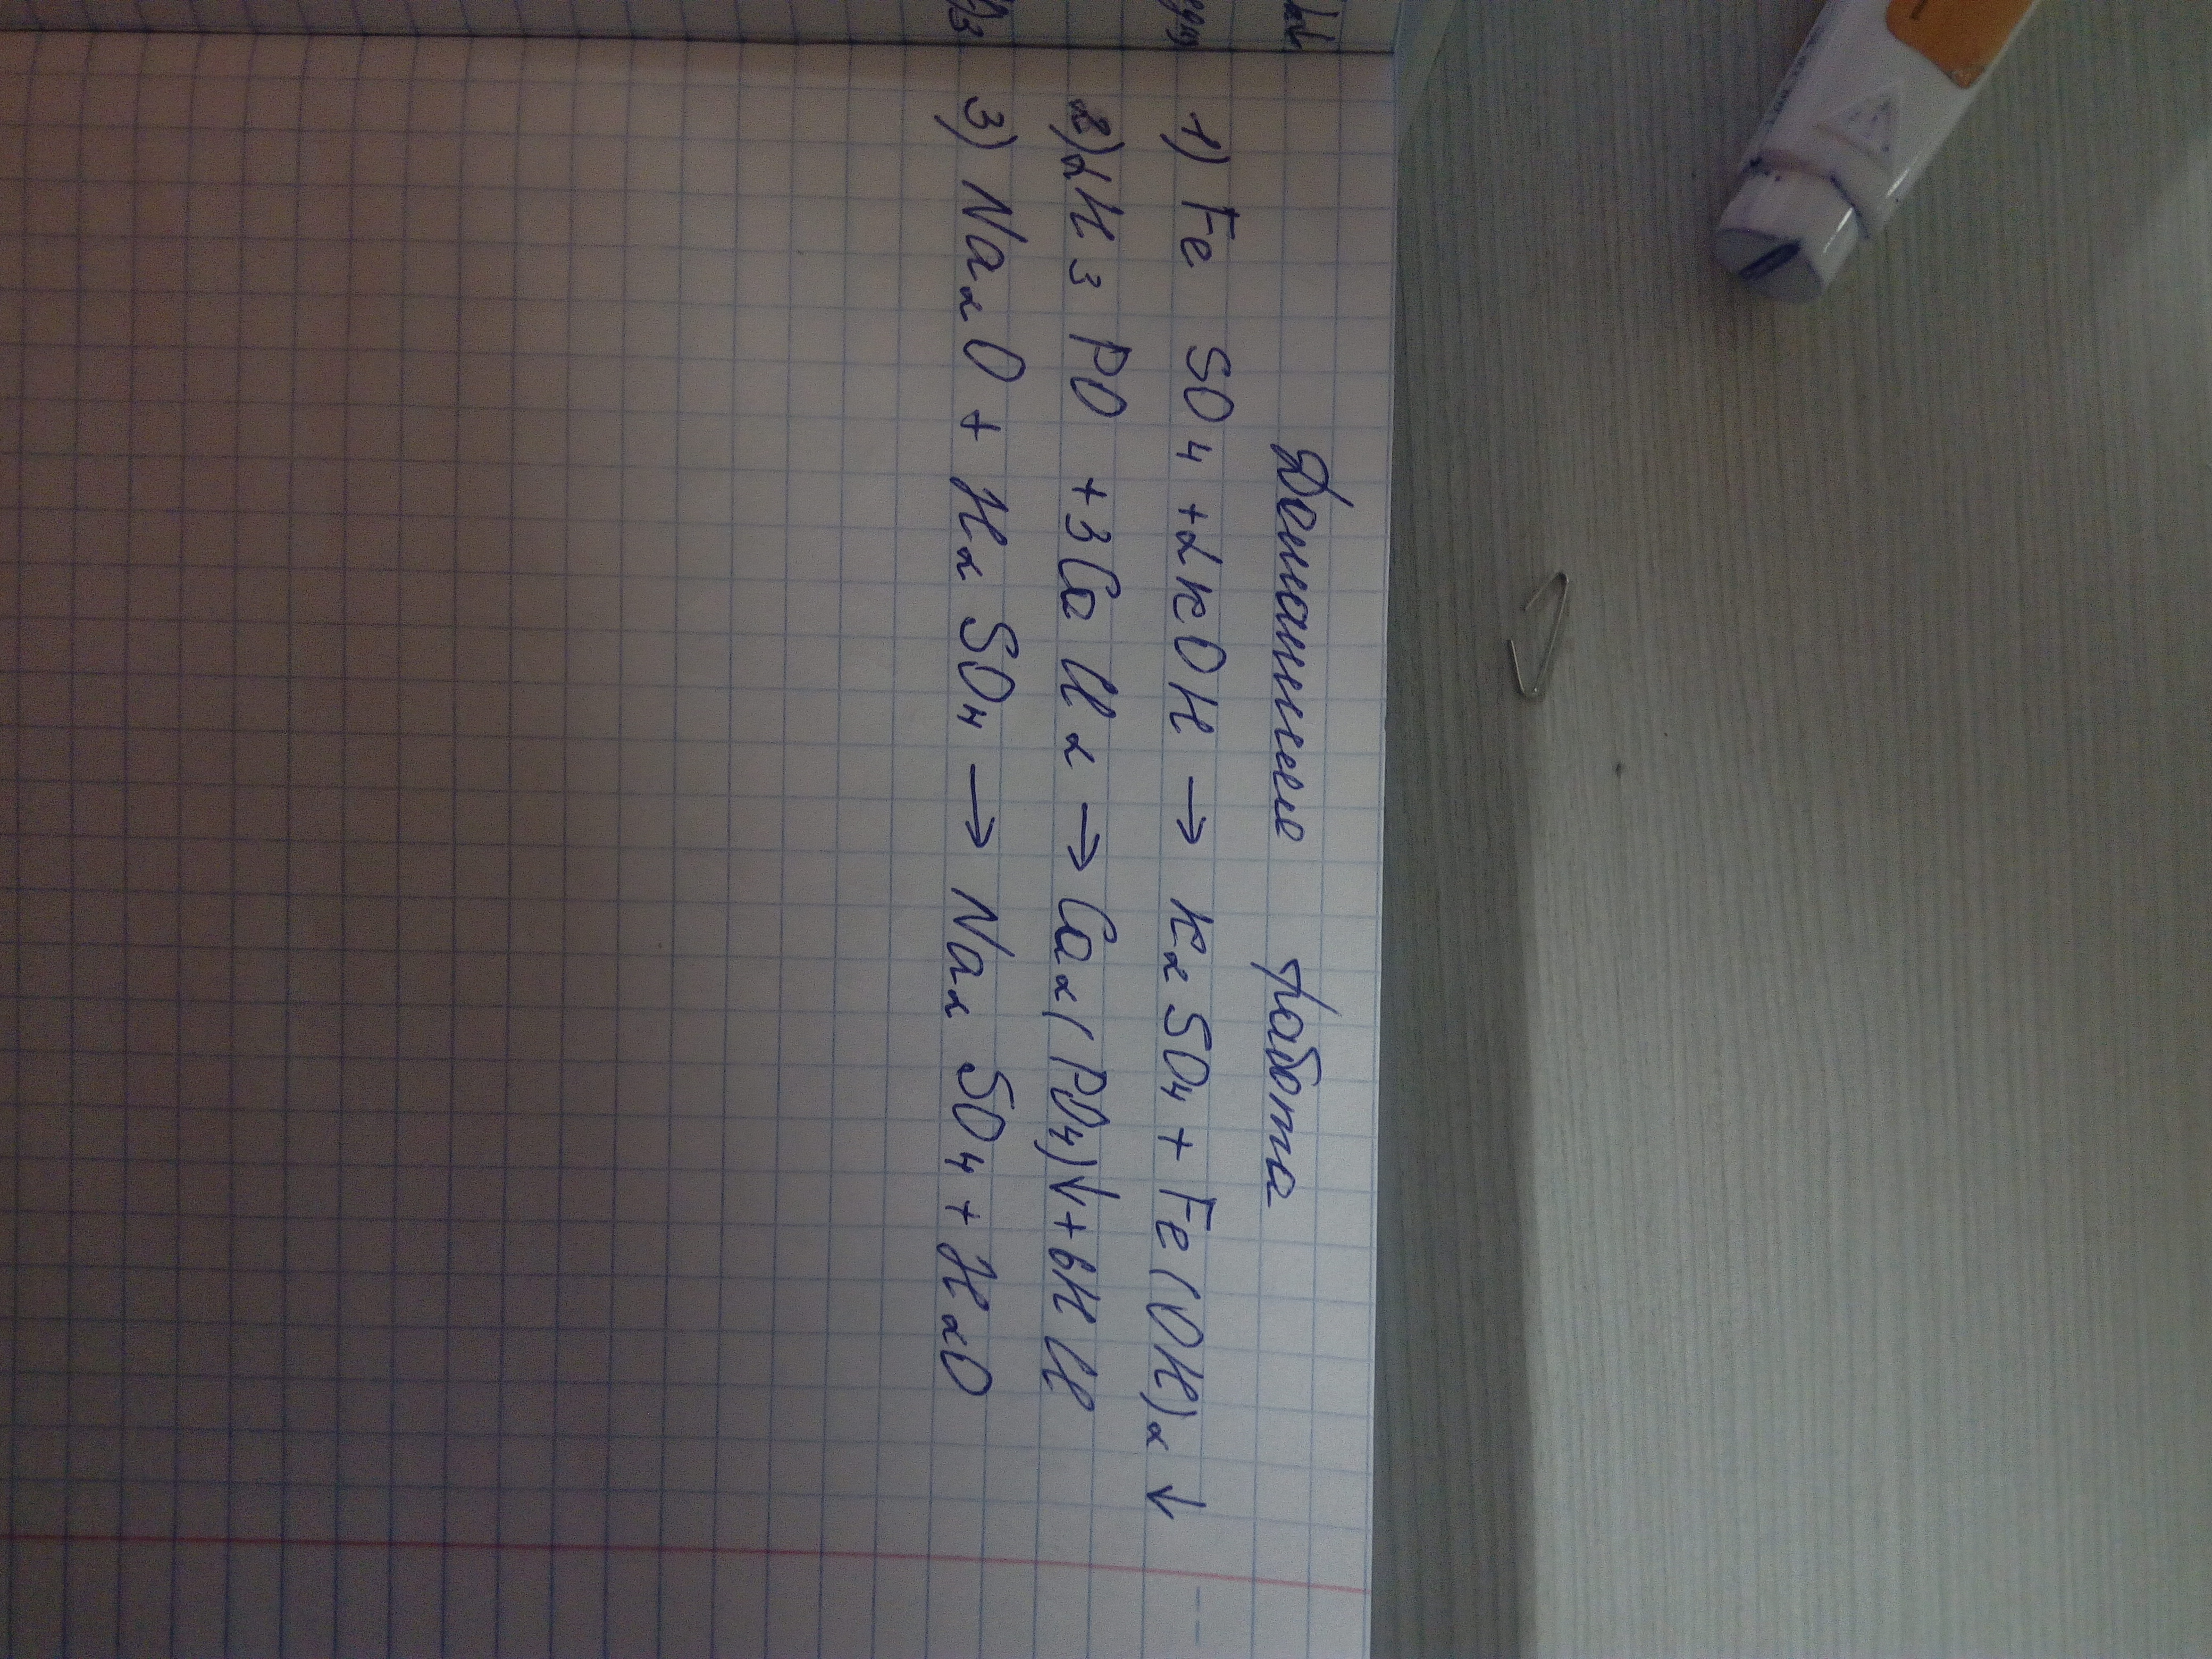 Домашнее работа
1) Fe SO4 + 2KOH → K2SO4 + Fe(OH)2 ↓
2) 2H3PO + 3CaCl2 → Ca2(PO4)↓ + 6HCl
3) Na2O + H2SO4 → Na2SO4 + H2O